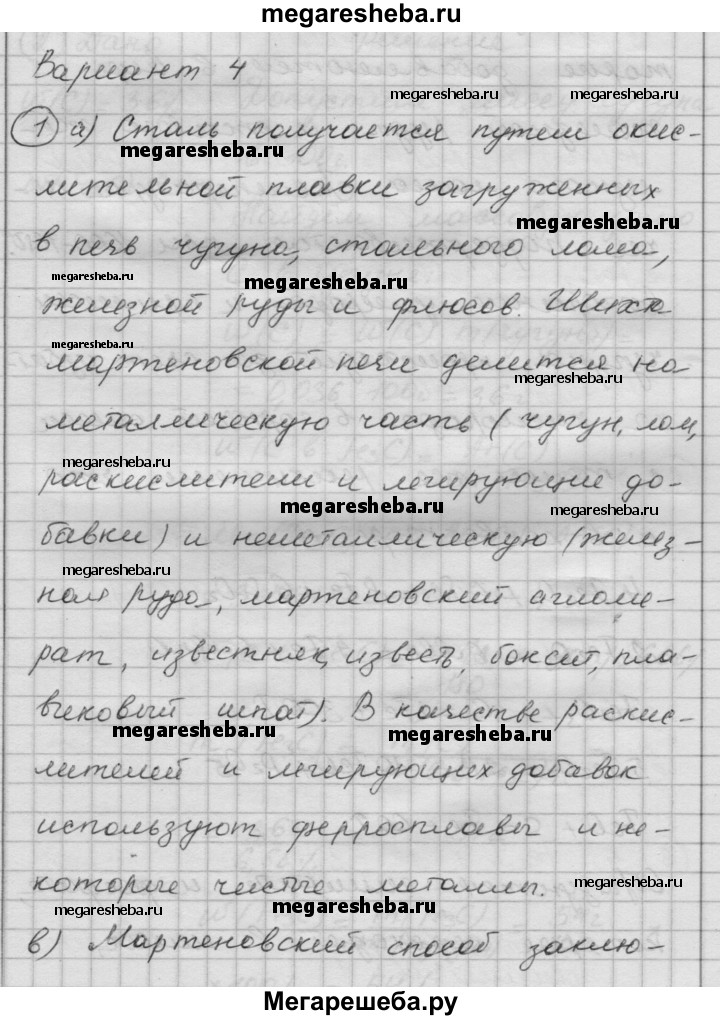 megaresheba.ru
Вариант 4
megaresheba.ru megaresheba.ru
1 а) Сталь получается путем окис-
megaresheba.ru
лительной плавки загруженных
megaresheba.ru
в печь чугуна, стального лома,
megaresheba.ru megaresheba.ru
железной руды и флюсов. Шихта
megaresheba.ru
мартеновской печи делится на
megaresheba.ru
металлическую часть (чугун, лом,
megaresheba.ru
раскислители и легирующие до-
megaresheba.ru megaresheba.ru
бавки) и неметаллическую (желез-
megaresheba.ru
ная руда, мартеновский агломе-
рат, известняк, известь, боксит, пла-
виковый шпат). В качестве раскис-
megaresheba.ru megaresheba.ru
лителей и легирующих добавок
используют ферросплавы и не-
которые чистые металлы.
megaresheba.ru
megaresheba.ru megaresheba.ru
в) Мартеновский способ заклю-
Мегарешеба.ру